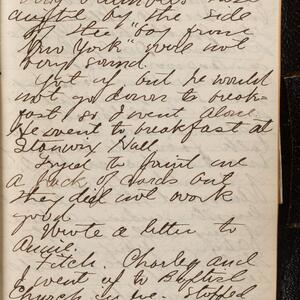 by the side
of the "boy from
New York" were not
very sound.
Got up but he would
not go down to break-
fast so I went alone
He went to breakfast at
Stanwix Hall
Tried to paint me
a back of cards but
they did not work
good
Wrote a letter to
Annie.
Fitch. Charley and
I went up to Baptist
Church